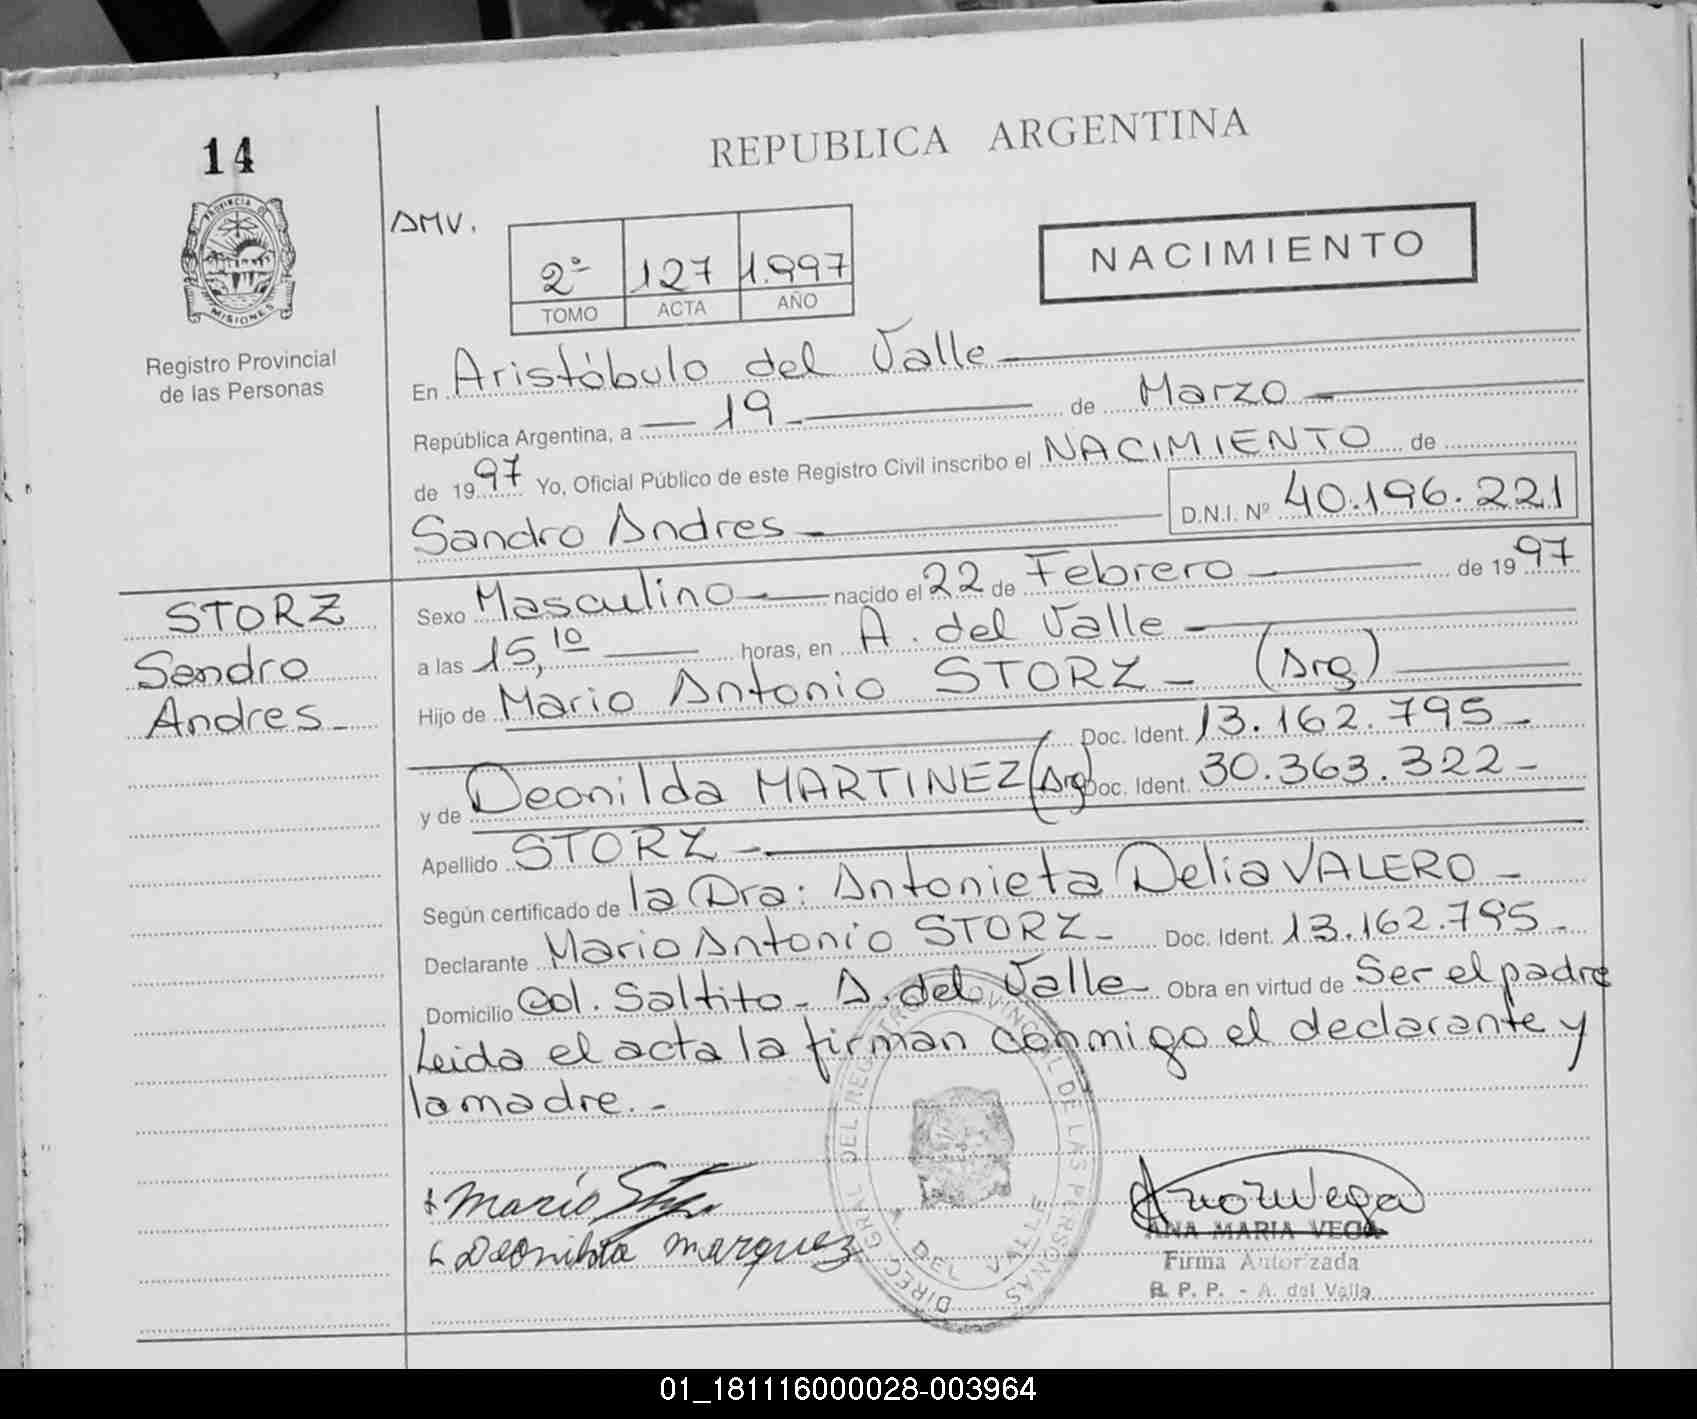 14
PROVINCIA DE
MISIONES
Registro Provincial
de las Personas
REPUBLICA ARGENTINA
AMV.
2º 127 1.997
TOMO ACTA AÑO
NACIMIENTO
En Aristóbulo del Valle
República Argentina, a 19 de Marzo
de 1997 Yo, Oficial Público de este Registro Civil inscribo el NACIMIENTO de
Sandro Andres D.N.I. Nº 40.196.221
STORZ
Sandro
Andres
Sexo Masculino nacido el 22 de Febrero de 1997
a las 15,10 horas, en A. del Valle
Hijo de Mario Antonio STORZ (Arg)
Doc. Ident. 13.162.795
y de Deonilda MARTINEZ (Arg) Doc. Ident. 30.363.322
Apellido STORZ
Según certificado de la Dra: Antonieta Delia VALERO
Declarante Mario Antonio STORZ Doc. Ident. 13.162.795
Domicilio Col. Saltito - A. del Valle Obra en virtud de Ser el padre
Leida el acta la firman conmigo el declarante y
la madre.-
DIREC. GRAL. DEL REGISTRO PROVINCIAL DE LAS PERSONAS
A. DEL VALLE
Mario
Deonilda marquez
ANA MARIA VEGA
Firma Autorizada
R. P. P. - A. del Valle
01_181116000028-003964